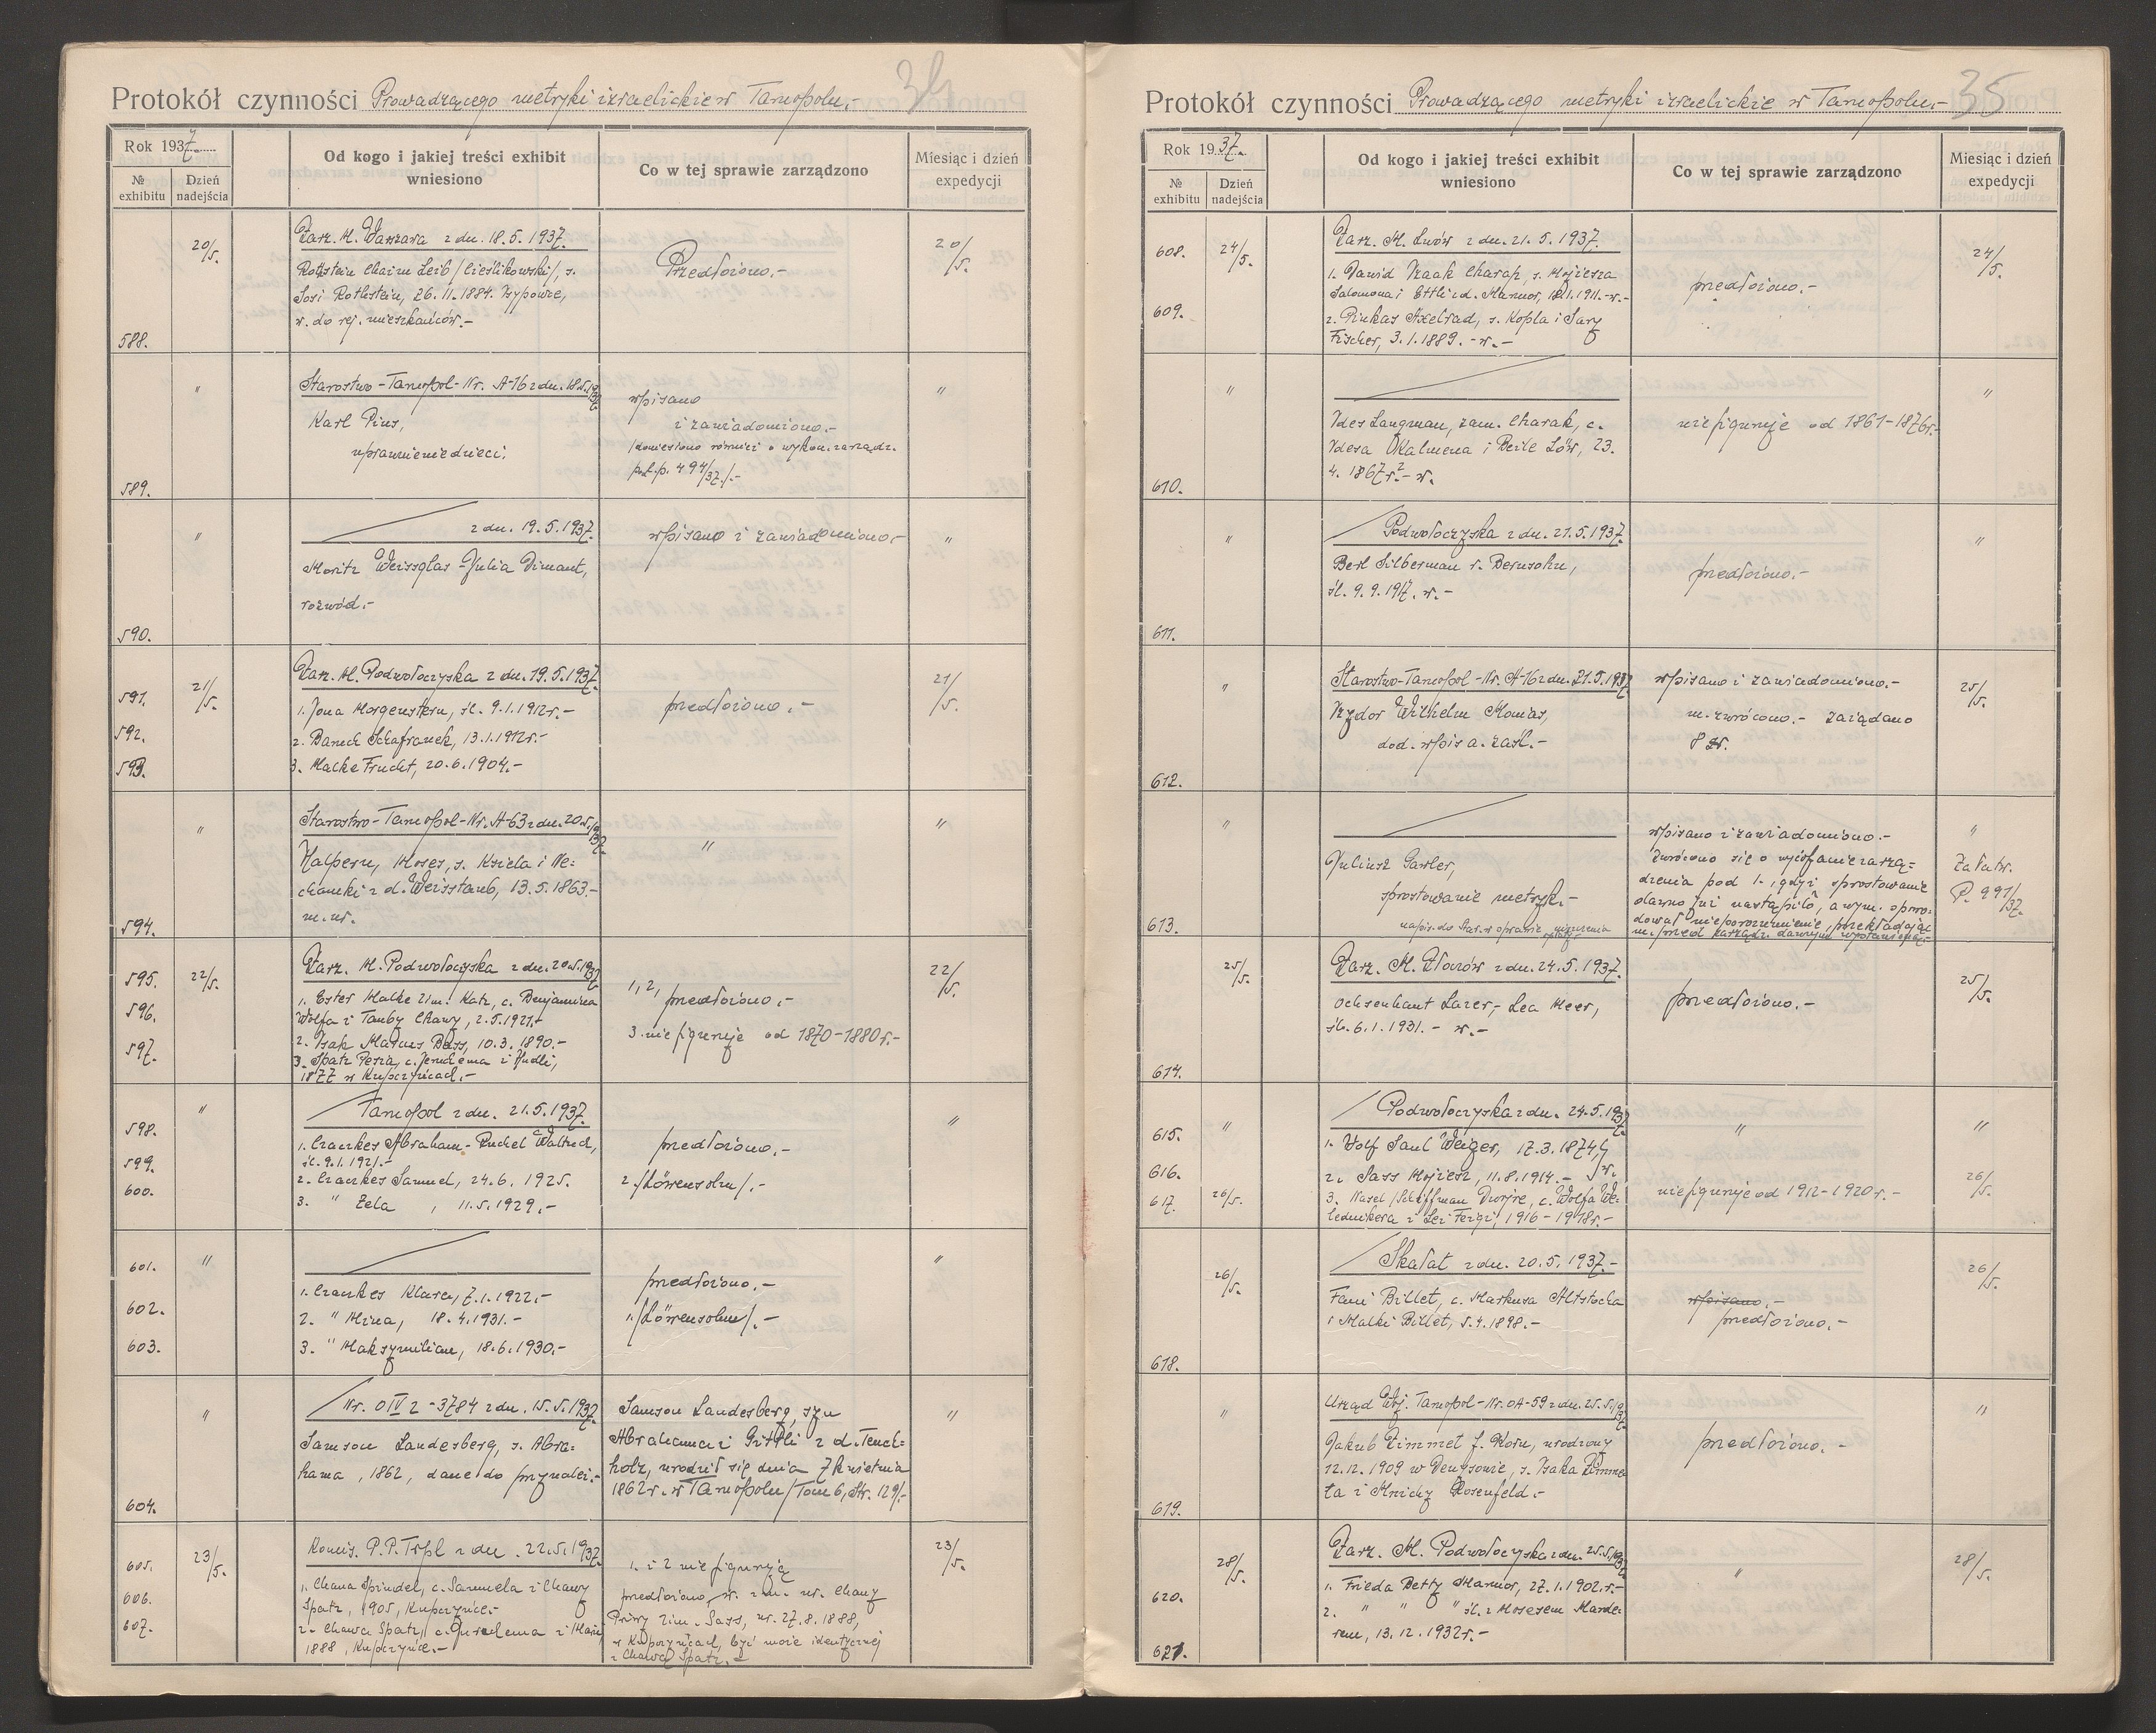 34
Protokół czynności Prowadzącego metryki izraelickie w Tarnopolu.-
Rok 1937.
№ exhibitu
Dzień nadejścia
Od kogo i jakiej treści exhibit wniesiono
Co w tej sprawie zarządzono
Miesiąc i dzień expedycji
588.
20/5.
Zarz. M. Warszawa z dn. 18.5.1937.
Rottstein Chaim Leib /Cieślikowski/, s.
Sosi Rothstein, 26.11.1884.
w. do rej. mieszkańców.-
Przedłożono.-
20/5.
589.
"
Starostwo-Tarnopol-Nr. A-16 z dn. 18.5.1937.
Karl Pius,
uprawnienie dzieci.
wpisano
i zawiadomiono.-
/doniesiono również o wykon. zarządz.
p.l.p. 494/37./.-
"
590.
"
z dn. 19.5.1937.
Moritz Weissglas-Julia Dimant,
rozwód.-
wpisano i zawiadomiono.-
"
591.
592.
593.
21/5.
Zarz. M. Podwołoczyska z dn. 19.5.1937.
1. Jona Morgenstern, śl. 9.1.1912r.-
2. Baruch Schafranek, 13.1.1912r.-
3. Malke Frucht, 20.6.1904.-
przedłożono.-
21/5.
594.
"
Starostwo-Tarnopol-Nr. A-63 z dn. 20.5.1937.
Halpern, Moses, s. Ksiela i Ne-
chamki z d. Weisstaub, 13.5.1863.-
m. ur.
"
"
595.
596.
597.
22/5.
Zarz. M. Podwołoczyska z dn. 20.5.1937.
1. Ester Malke 2im. Katz, c. Benjamina
Wolfa i Tauby Chawy, 2.5.1921.-
2. Izak Marcus Bass, 10.3.1890.-
3. Spatz Pesza, c. Jeruchema i Hudli,
1877 w Kupczyńcach.-
1, 2, przedłożono.-
3. nie figuruje od 1870-1880r.-
22/5.
598.
599.
600.
"
Tarnopol z dn. 21.5.1937.
1. Czaczkes Abraham-Ruchel Waltuch,
śl. 9.1.1921.-
2. Czaczkes Samuel, 24.6.1925.
3. " Zela, 11.5.1929.-
przedłożono.-
2./Löwensohn/.-
"
601.
602.
603.
"
1. Czaczkes Klara, 7.1.1922.-
2. " Mina, 18.4.1931.-
3. " Maksymilian, 18.6.1930.-
przedłożono.-
1./Löwensohn/.-
"
604.
"
Nr. OIV 2-3784 z dn. 15.5.1937.
Samson Landesberg, s. Abra-
hama, 1862, dane do przynależ.-
Samson Landesberg, syn
Abrahama i Gittli z d. Teuch-
holz, urodził się dnia 7 kwietnia
1862r. w Tarnopolu/Tom 6, Str. 129/.-
"
605.
606.
607.
23/5.
Komis. P.P. Trpl z dn. 22.5.1937.
1. Chana Spindel, c. Samuela i Chawy
Spatz, 1905, Kupczyńce.-
2. Chawa Spatz, c. Jeruchema i
1888, Kupczyńce.-
1. i 2 nie figurują
przedłożono, w. z m. ur. Chany
2im. Sass, ur. 27.8.1888,
w Kupczyńcach, być może identycznej
z Chawą Spatz.-
23/5.
35
Protokół czynności Prowadzącego metryki izraelickie w Tarnopolu.-
Rok 1937.
№ exhibitu
Dzień nadejścia
Od kogo i jakiej treści exhibit wniesiono
Co w tej sprawie zarządzono
Miesiąc i dzień expedycji
608.
609.
24/5.
Zarz. M. Lwów z dn. 21.5.1937.
1. Dawid Izaak Charap, s. Mojżesza
Salomona i Ettli z d. Marmor, 1911.-w.-
2. Pinkas Axelrad, s. Kopla i Sary
Fischer, 3.1.1889.-w.-
przedłożono.-
24/5.
610.
"
Ides Langman, zam. Charak, c.
Kalmena i Beile Löw, 23.
4.1867r.-w.
nie figuruje od 1861-1876r.-
"
611.
"
Podwołoczyska z dn. 21.5.1937.
Berl Silberman r. Bernsohn,
śl. 9.9.1917. w.-
przedłożono.-
"
612.
"
Starostwo-Tarnopol-Nr. A-16 z dn. 21.5.1937.
Izydor Wilhelm Monias,
dod. wpis a. zaśl.-
wpisano i zawiadomiono.-
m. zwrócono.- zażądano
8 zł.
25/5.
613.
"
Juliusz Gawler,
sprostowanie metryk.-
napis. do Star. w sprawie
wpisano i zawiadomiono.-
zwrócono się o wycofanie zarzą-
dzenia pod 1., gdyż sprostowanie
dawno już nastąpiło, a wym. spowo-
dował nieporozumienie, przekładając
m. przed zarządz. dawnym
"
Załatw.
P. 991/37.
614.
25/5.
Zarz. M. Złoczów z dn. 24.5.1937.
Ochsenhaut Lazer,- Lea Meer,
śl. 6.1.1931.- w.-
przedłożono.-
25/5.
615.
616.
617.
"
26/5.
Podwołoczyska z dn. 24.5.1937.
1. Wolf Saul Weizer, 17.3.1874,
2. Sass Mojżesz, 11.8.1914.- w.
3. Nasel/Schiffman Dwojre, c. Wolfa We-
lednikera i Lei Feigi, 1916-1918r.-
"
nie figuruje od 1912-1920r.-
"
26/5.
618.
26/5.
Skałat z dn. 20.5.1937.-
Fani Billet, c. Markusa Altstocka
i Malki Billet, 5.4.1898.-
wpisano.-
przedłożono.-
26/5.
619.
"
Urząd Woj. Tarnopol-Nr. OA-59 z dn. 25.5.1937.
Jakub Zimmet f. Korn, urodzony
12.12.1909 w Denysowie, s. Izaka Zimme-
ta i Rosenfeld.-
przedłożono.-
"
620.
621.
28/5.
Zarz. M. Podwołoczyska z dn. 25.5.1937.
1. Frieda Betty Marmor, 27.1.1902.r.-
2. " " " śl. z Mosesem Marde-
rem, 13.12.1932r.-
"
28/5.